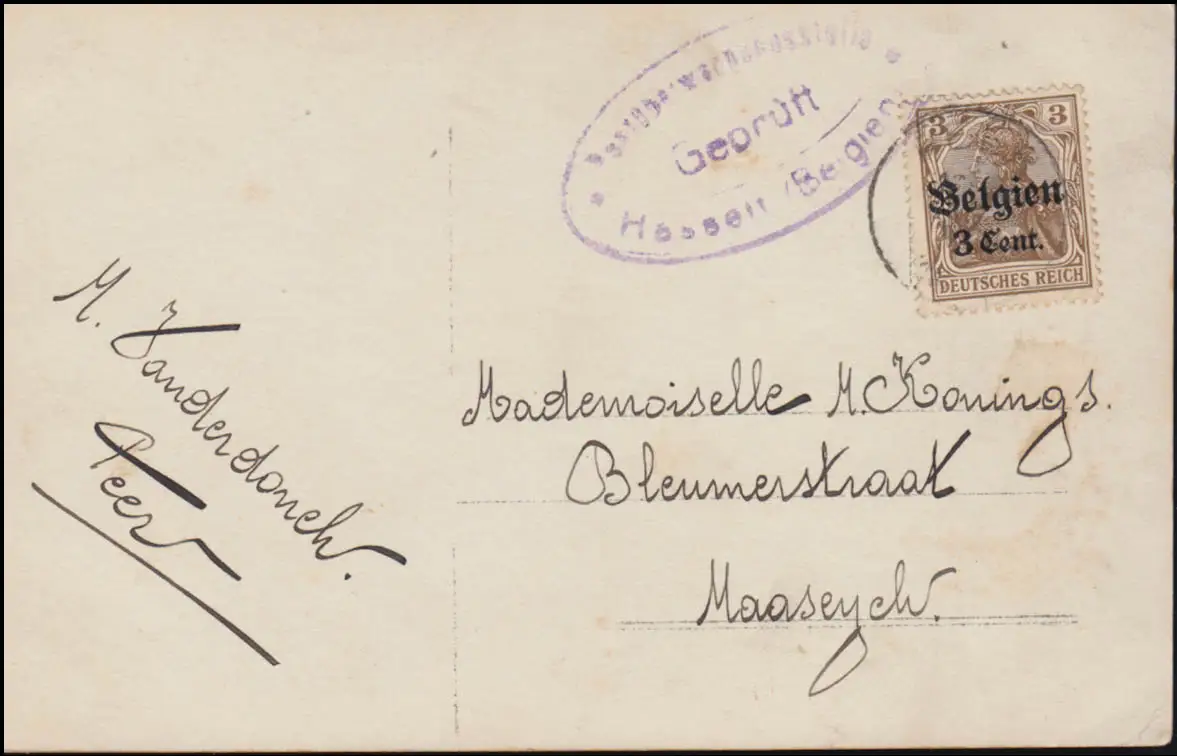 Postüberwachungsstelle
Geprüft
Hasselt (Belgien)
3 3
Belgien
3 Cent.
DEUTSCHES REICH
M. Vanderdonck.
Peer
Mademoiselle M. Konings.
Bleumerstraat
Maaseyck.